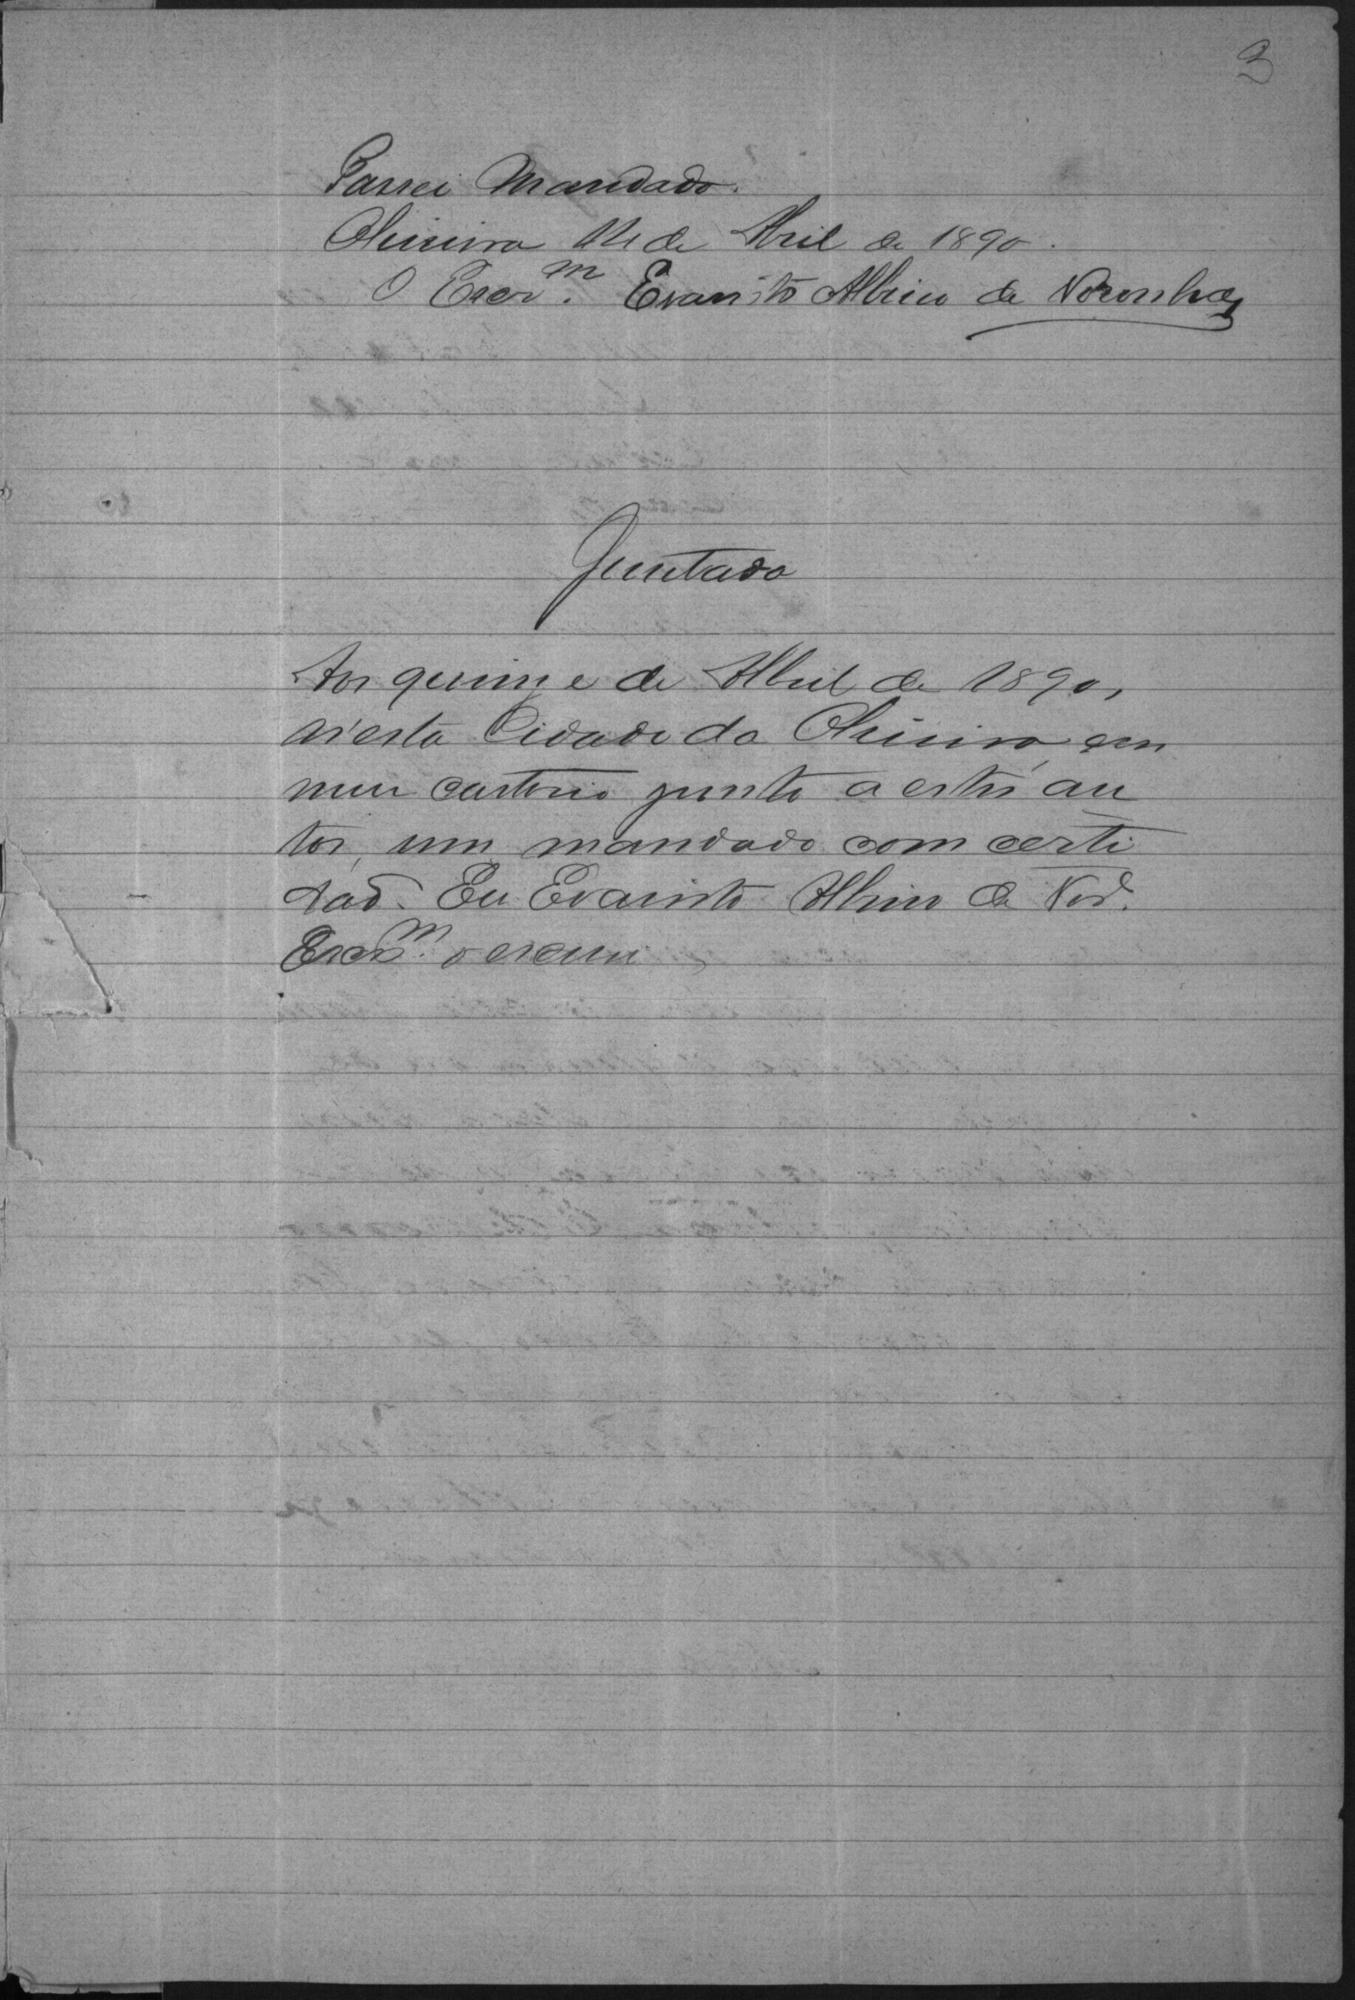 3
Passei Mandado.
Oliveira 14 de Abril de 1890.
O Escr.m Evaristo Albino de Noronha
Juntada
Aos quinze de Abril de 1890,
n'esta Cidade da Oliveira, em
meu cartorio junto a estes au
tos, um mandado com certi
dão. Eu Evaristo Albino de Nor.
Escr.m o escrevi